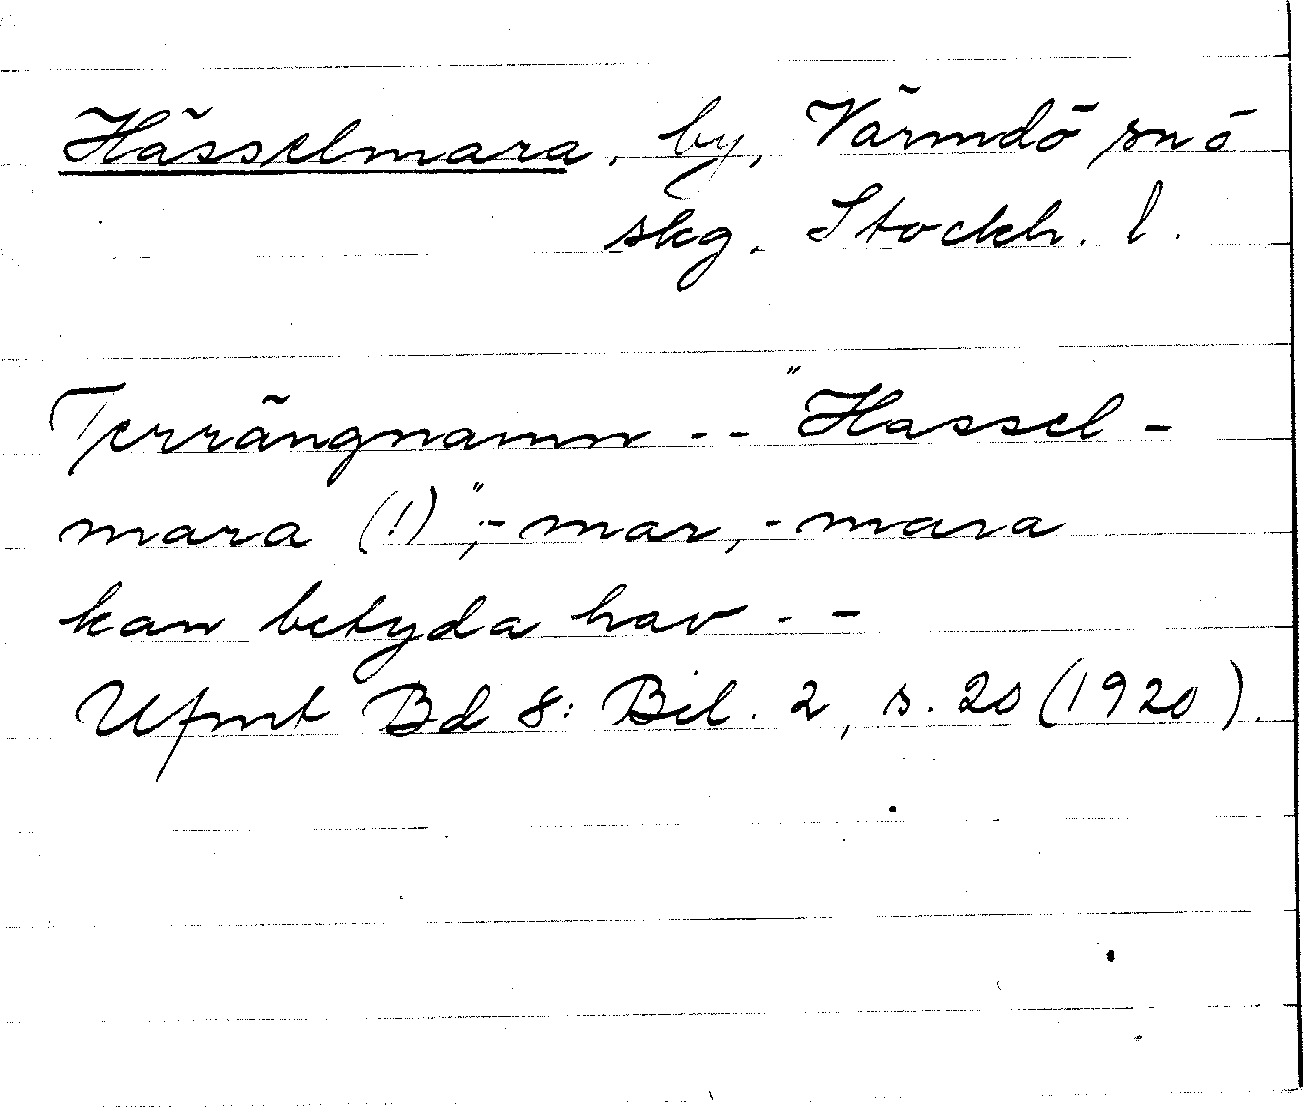 Hässelmara, by, Värmdö sn ö
skg. Stockh. l.
Terrängnamn -- "Hassel-
mara (!)", -mar, -mara
kan betyda hav --
Ufmt Bd 8: Bil. 2, s. 20 (1920).